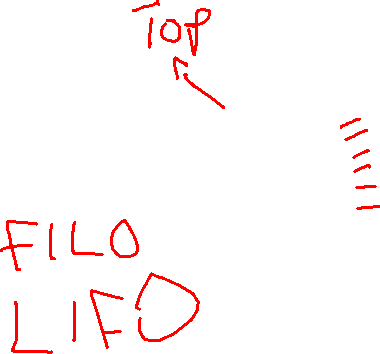 Top
FILO
LIFO